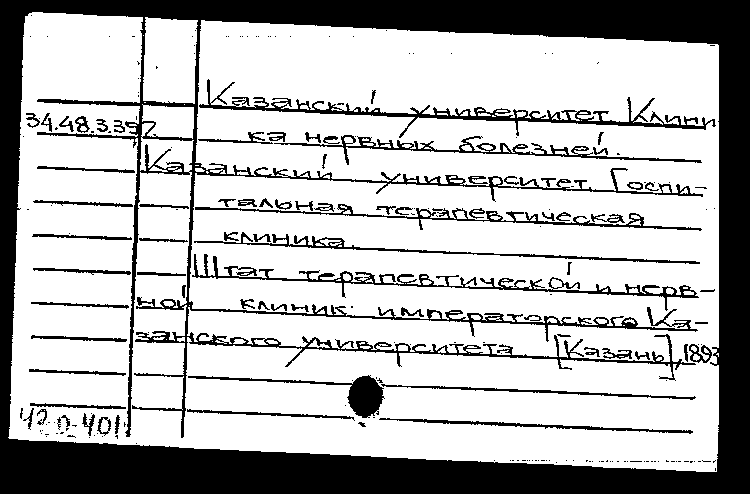 Казанский университет. Клини
34.48.3.357
ка нервных болезней.
Казанский университет. Госпи-
тальная терапевтическая
клиника.
Штат терапевтической и нерв-
ной клиник императорского Ка-
занского университета [Казань], 1893
42 0-401